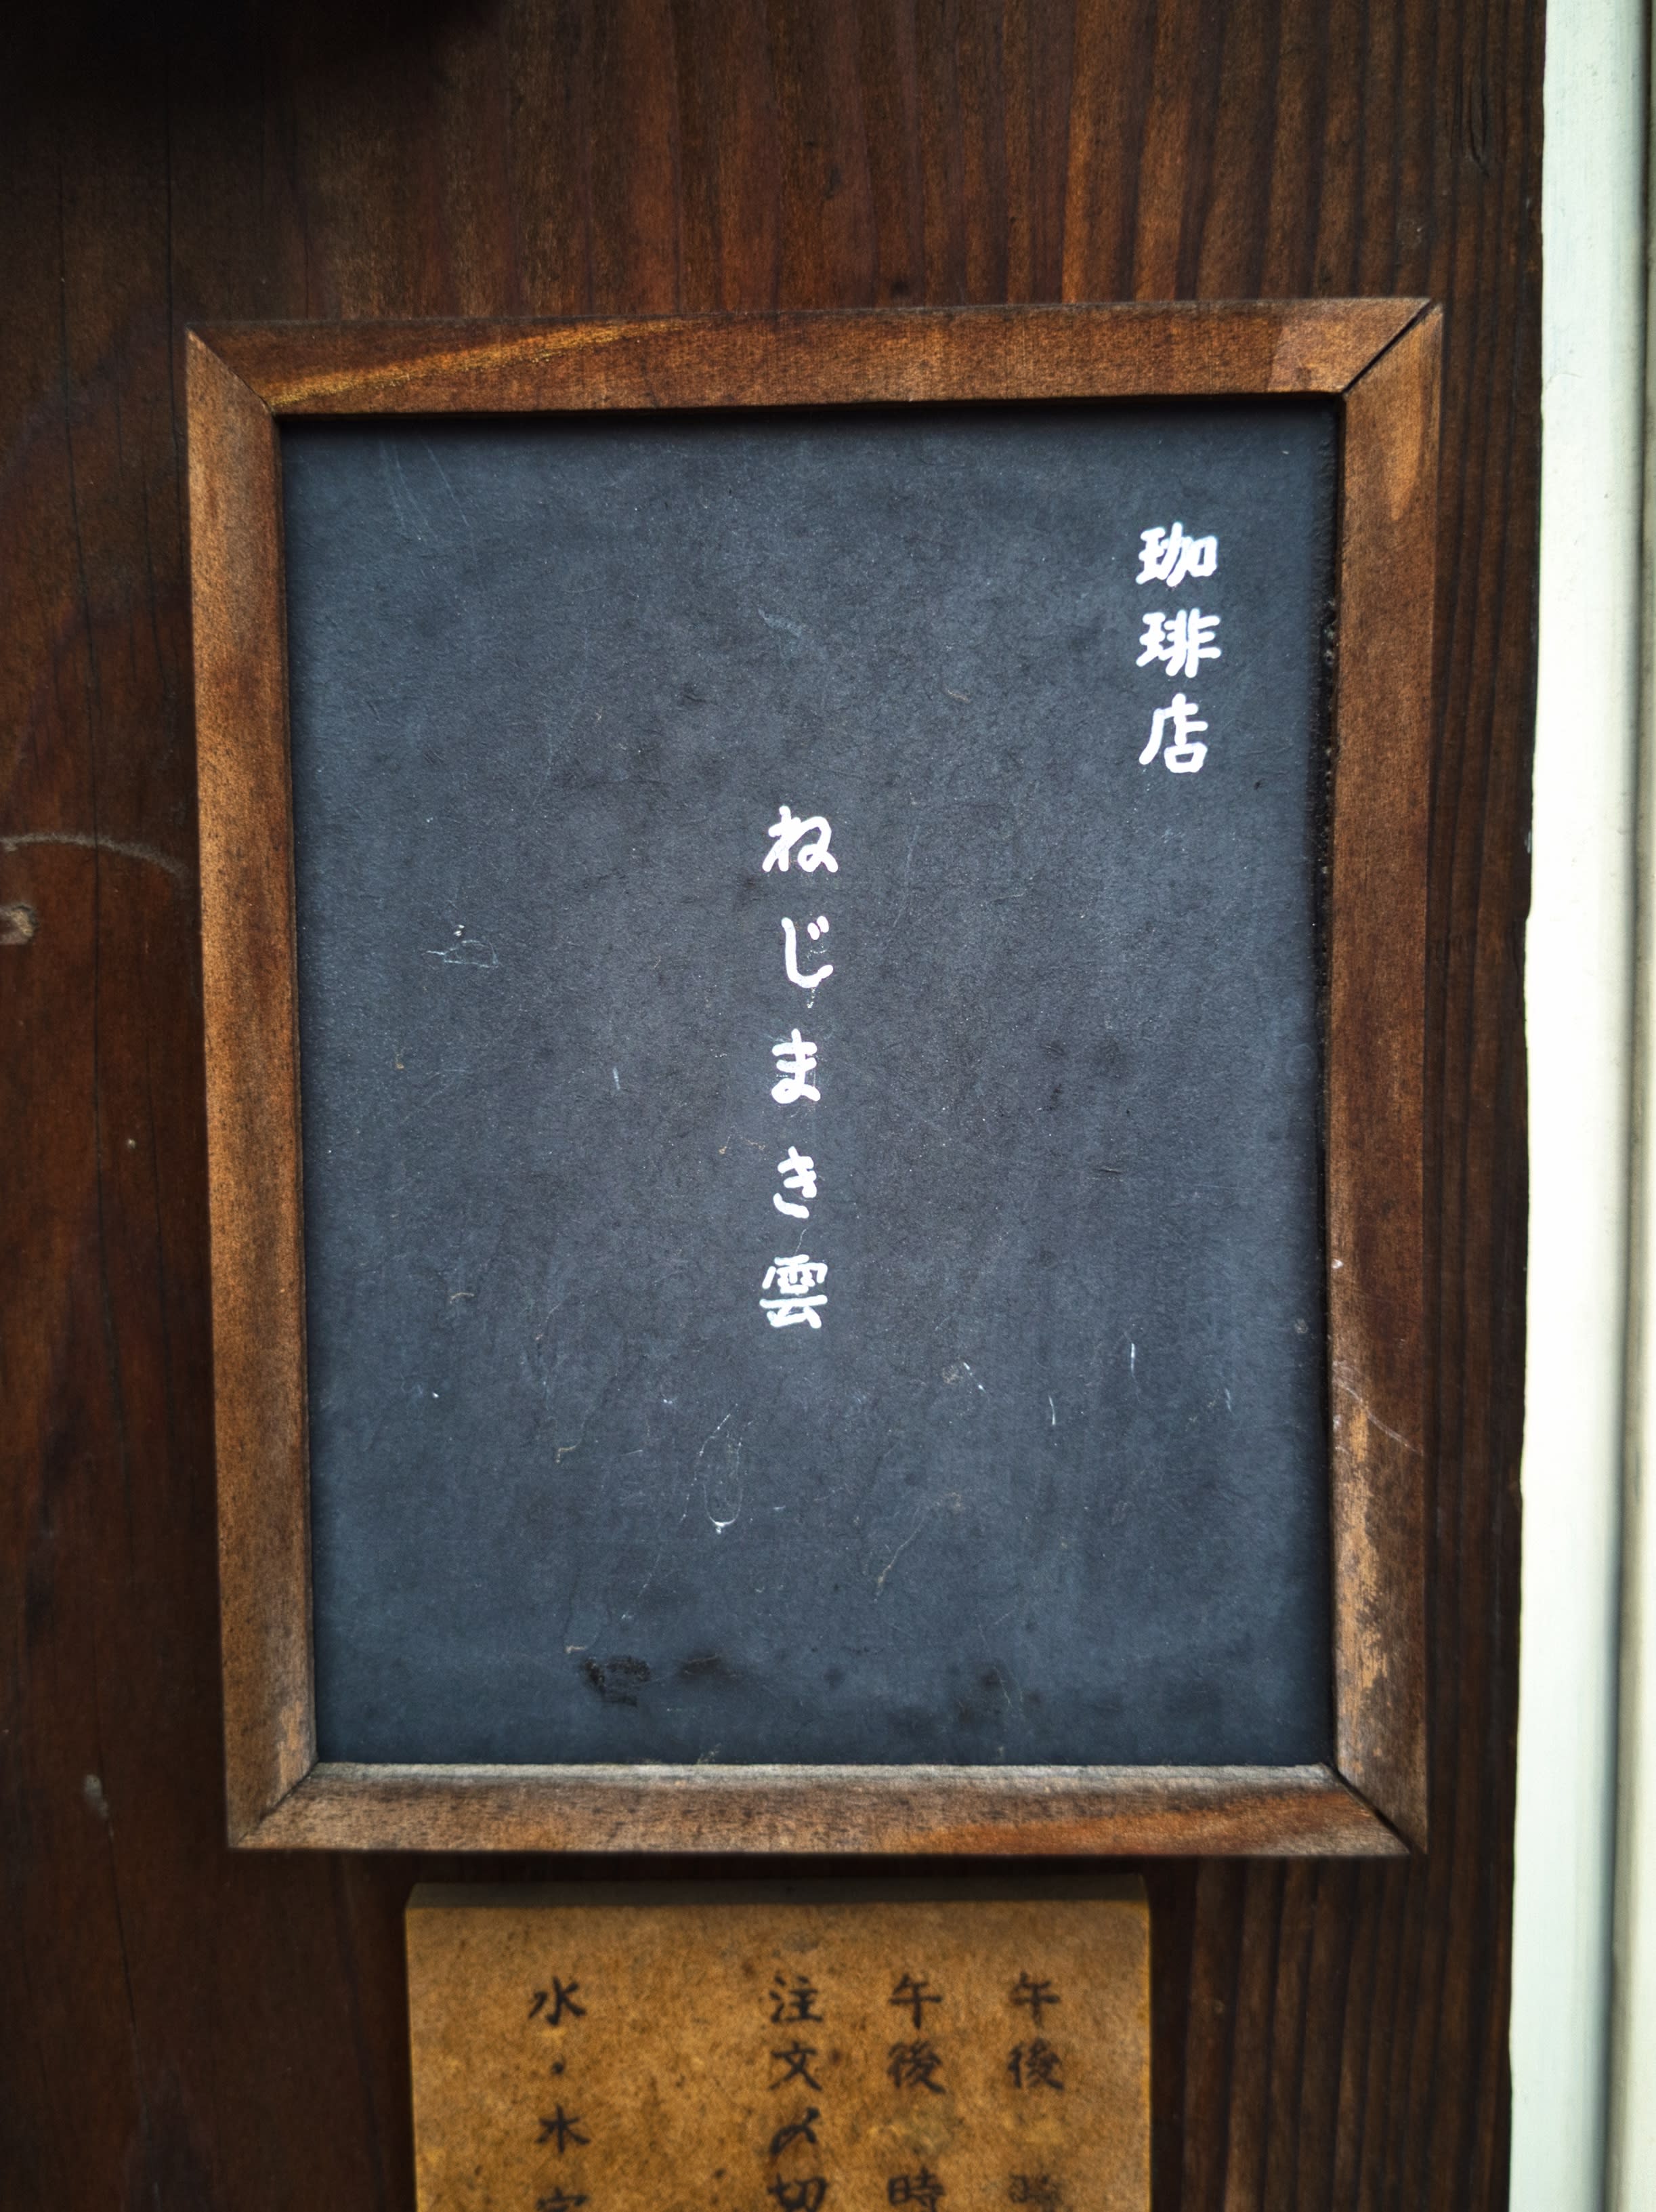 珈琲店
ねじまき雲
午後
午後 時
注文〆切
水・木定